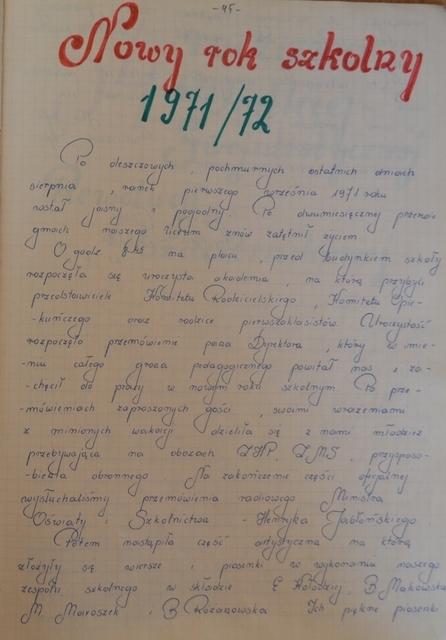 - 45 -
Nowy rok szkolny
1971/72
Po deszczowych, pochmurnych ostatnich dniach
sierpnia, ranek pierwszego września 1971 roku
nastał jasny i pogodny. Po dwumiesięcznej przerwie
gmach naszego liceum znów zatętnił życiem.
O godz. 8.45 na placu, przed budynkiem szkoły
rozpoczęła się uroczysta akademia, na którą przybyli
przedstawiciele Komitetu Rodzicielskiego, Komitetu Opie-
-kuńczego oraz rodzice pierwszoklasistów. Uroczystość
rozpoczęło przemówienie pana Dyrektora, który w imie-
-niu całego grona pedagogicznego powitał nas i za-
-chęcił do pracy w nowym roku szkolnym. Po prze-
-mówieniach zaproszonych gości, swoimi wrażeniami
z minionych wakacji dzieliła się z nami młodzież
przebywająca na obozach ZHP, ZMS, przysposo-
-bienia obronnego. Na zakończenie części oficjalnej
wysłuchaliśmy przemówienia radiowego Ministra
Oświaty i Szkolnictwa - Henryka Jabłońskiego
Potem nastąpiła część artystyczna na którą
złożyły się wiersze i piosenki w wykonaniu naszego
zespołu szkolnego w składzie E. Kołodziej, B. Makowska
M. Maroszek, B. Rożanowska. Ich piękne piosenki